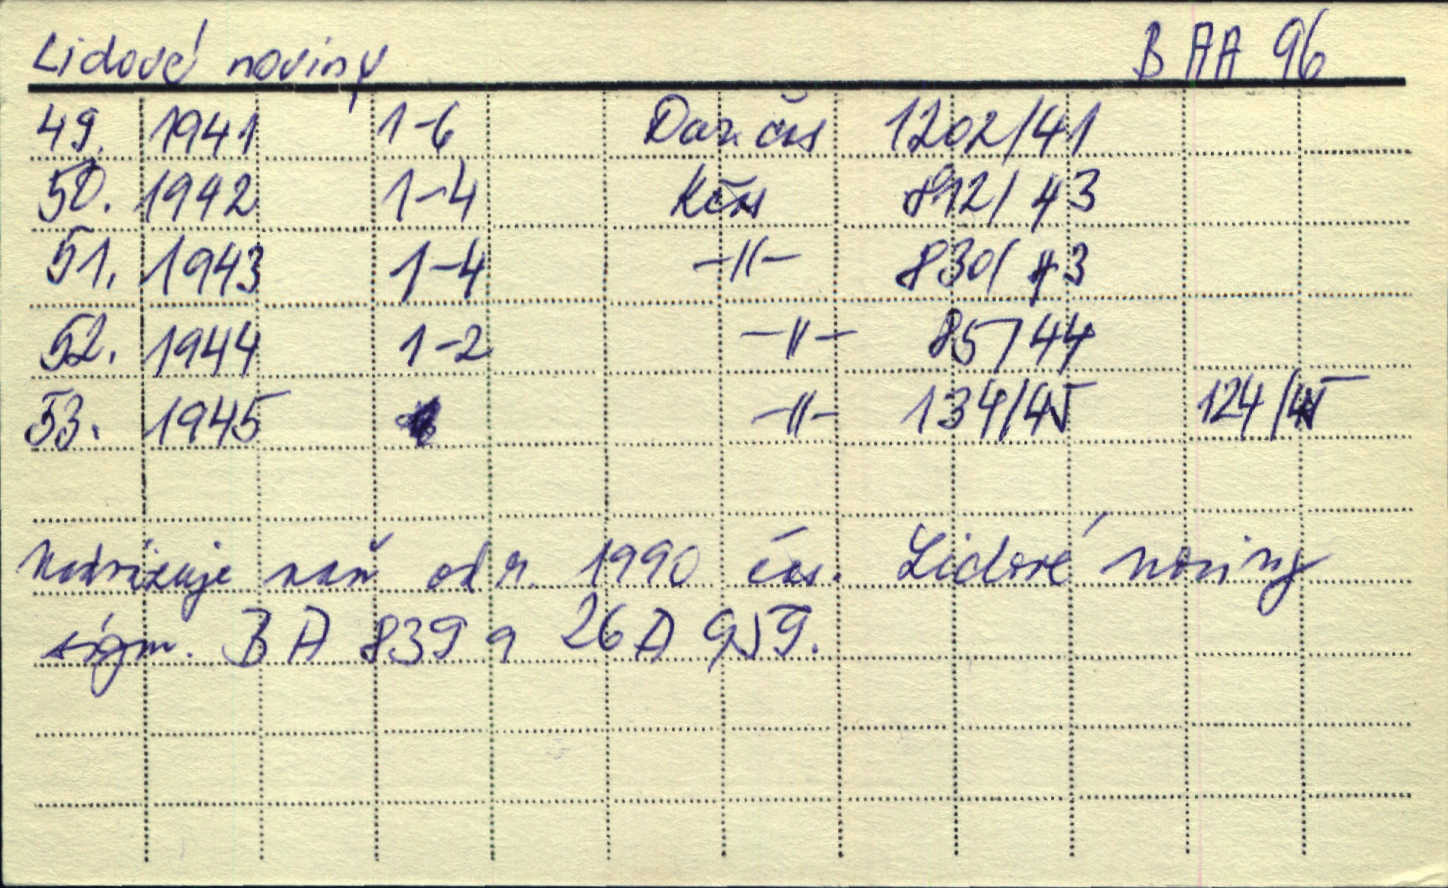 Lidové noviny B AA 96
49. 1941 1-6 Dar. čas 1202/41
50. 1942 1-4 892/43
51. 1943 1-4 -||- 830/43
52. 1944 1-2 -||- 85/44
53. 1945 -||- 134/45 124/45
Nadvizuje naň od r. 1990 čas. Lidové noviny
sign. BA 839 a 26 A 959.